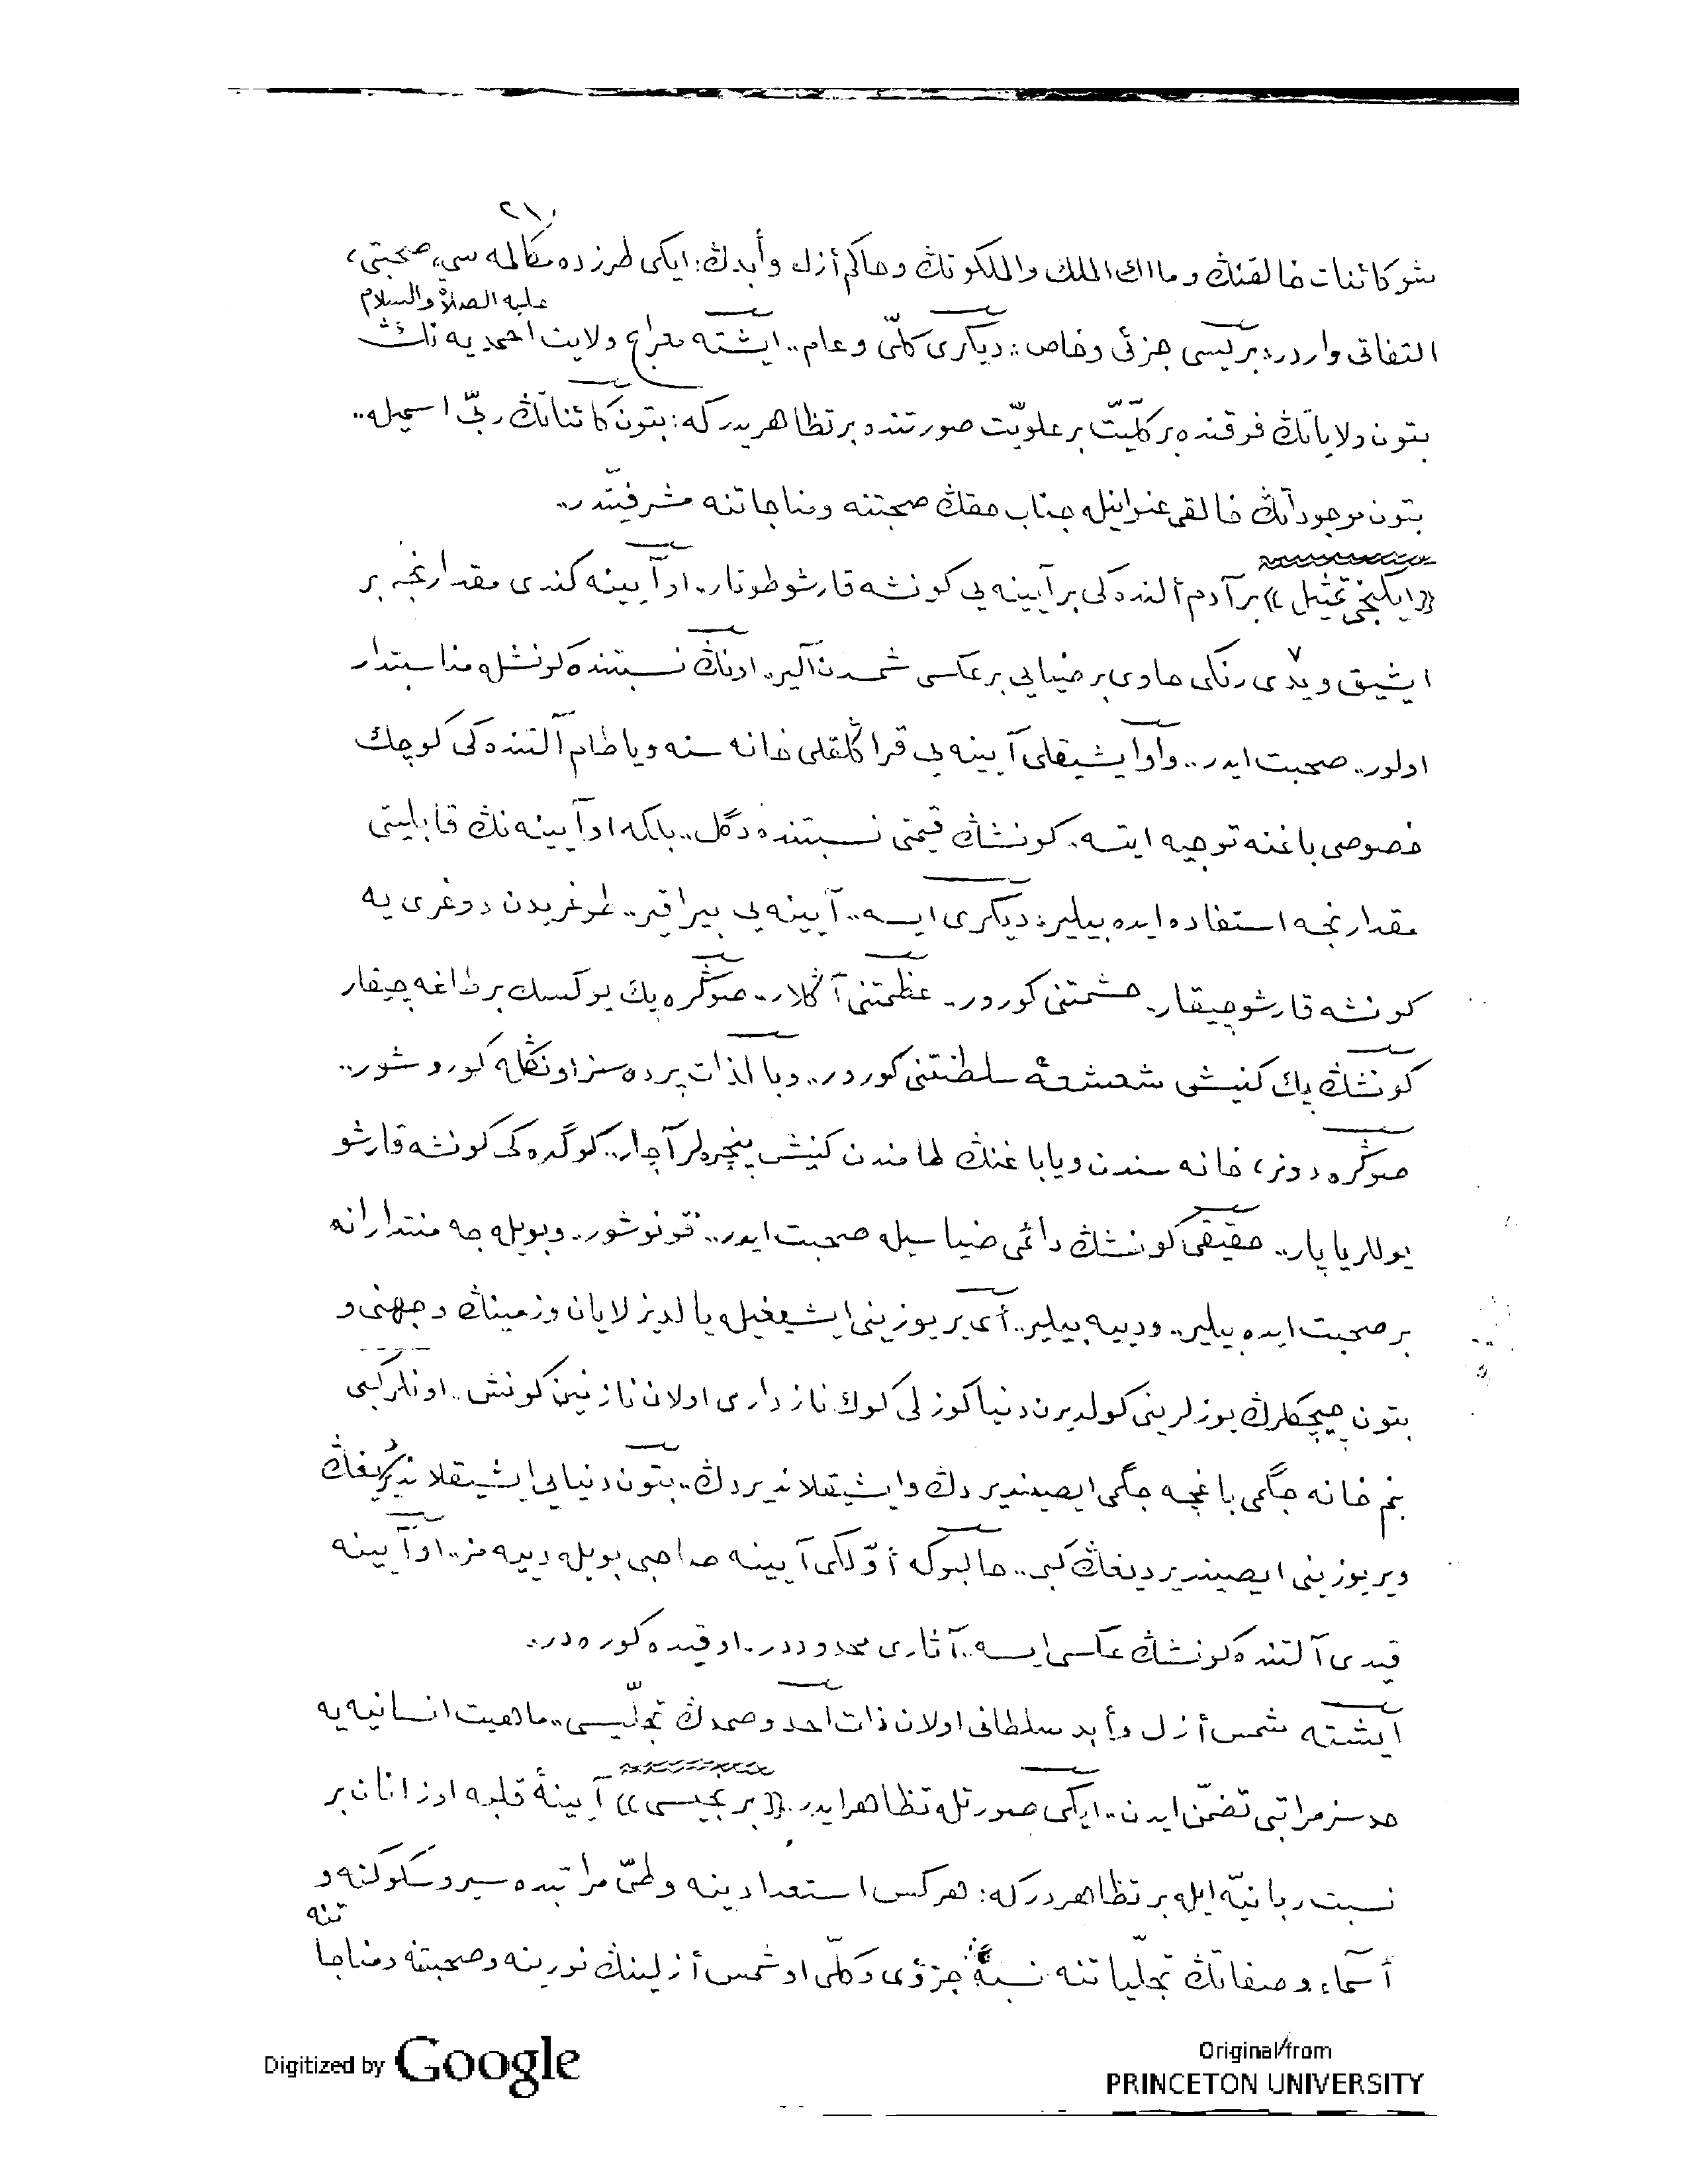 ٢١٠
شو كائنات خالقنڭ ومالك الملك والملكوتڭ وحاكم أزل وأبدڭ: ايكى طرزده مكالمه سي، صحبتى،
التفاتى واردر: بريسى جزئى وخاص.: ديكرى كلّى وعام.. ايشته معراج ولايت احمديه نڭ عليه الصلاة والسلام
بتون ولاياتڭ فوقنده بر كلّيّت بر علويّت صورتنده بر تظاهريدركه: بتون كائناتڭ ربّى اسميله..
بتون موجوداتڭ خالقى عنوانيله جناب حقڭ صحبتنه ومناجاتنه مشرفيّتدر..
((ايكنجى تمثيل)) بر آدم ألنده كى بر آيينه يى كونشه قارشو طوتار.. او آيينه كندى مقدارنجه بر
ايشيق ويدى رنكى حاوى بر ضيايى بر عكسى شمسدن آلير.. اونڭ نسبتنده كونشله مناسبتدار
اولور.. صحبت ايدر.. واو ايشيقلى آيينه يى قراڭلقلى خانه سنه ويا طام آلتنده كى كوچك
خصوصى باغنه توجيه ايتسه. كونشڭ قيمتى نسبتنده دگل.. بلكه او آيينه نڭ قابليتى
مقدارنجه استفاده ايده بيلير: ديكرى ايسه.. آيينه يى بيراقير.. طوغريدن دوغرى يه
كونشه قارشو چيقار.. حشمتنى كورور.. عظمتنى آڭلار.. صوڭره پك يوكسك بر طاغه چيقار
كونشڭ پك كنيش شعشعهٔ سلطنتنى كورور.. وبالذات پرده سز اونڭله كوروشور..
صوڭره دونر، خانه سندن ويا باغنڭ طامندن كنيش پنجره لر آچار.. كوگده كى كونشه قارشو
يوللر ياپار.. حقيقى كونشڭ دائمى ضياسيله صحبت ايدر.. قونوشور.. وبويله جه منتدارانه
بر صحبت ايده بيلير.. ودييه بيلير.. أى ير يوزينى ايشيغيله يالديزلايان وزمينڭ وجهنى و
بتون چيچكلرڭ يوزلرينى كولديرن دنيا كوزلى كوك نازدارى اولان نازنين كونش.. اونلر كبى
بنم خانه جگمى باغچه جگمى ايصينديردڭ وايشيقلانديردڭ.. بتون دنيايى ايشيقلانديرديغڭ
وير يوزينى ايصينديرديغڭ كبى.. حالبوكه أوّلكى آيينه صاحبى بويله دييه مز.. او آيينه
قيدى آلتنده كونشڭ عكسى ايسه.. آثارى محدوددر.. او قيده كوره در..
ايشته شمس أزل وأبد سلطانى اولان ذات احد وصمدڭ تجلّيسى.. ماهيت انسانيه يه
حدسز مراتبى تضمّن ايدن.. ايكى صورتله تظاهر ايدر. ((برنجيسى)) آيينهٔ قلبه اوزانان بر
نسبت ربانيّه ايله بر تظاهردركه: هركس استعدادينه وطىّ مراتبده سير وسلوكنه و
أسماء وصفاتڭ تجلّياتنه نسبةً جزؤى وكلّى او شمس أزلينڭ نورينه وصحبتنه ومناجاتنه
Digitized by Google
Original from
PRINCETON UNIVERSITY